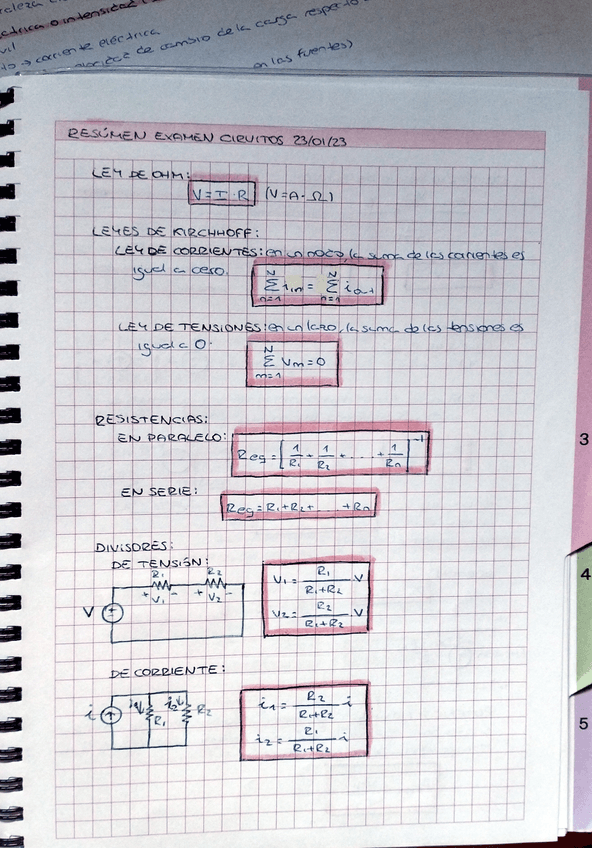 ctrica o intensidad
→ corriente eléctrica
de cambio de la carga respecto
en las fuentes)
RESÚMEN EXAMEN CIRUITOS 23/01/23
LEY DE OHM:
V=I·R (V=A·Ω)
LEYES DE KIRCHHOFF:
LEY DE CORRIENTES: en un nodo, la suma de las corrientes es
igual a cero.
N∑n=1 i in = N∑n=1 i out
LEY DE TENSIONES: en un lazo, la suma de las tensiones es
igual a 0.
N∑m=1 Vm=0
RESISTENCIAS:
EN PARALELO: Req=[1/R1 + 1/R2 + ... + 1/Rn]⁻¹
EN SERIE: Req=R1+R2+ ... +Rn
DIVISORES:
DE TENSIÓN:
R1 R2
+ V1 - + V2 -
V
V1 = R1/(R1+R2) · V
V2 = R2/(R1+R2) · V
DE CORRIENTE:
i i1 R1 i2 R2
i1 = R2/(R1+R2) i
i2 = R1/(R1+R2) i
3
4
5